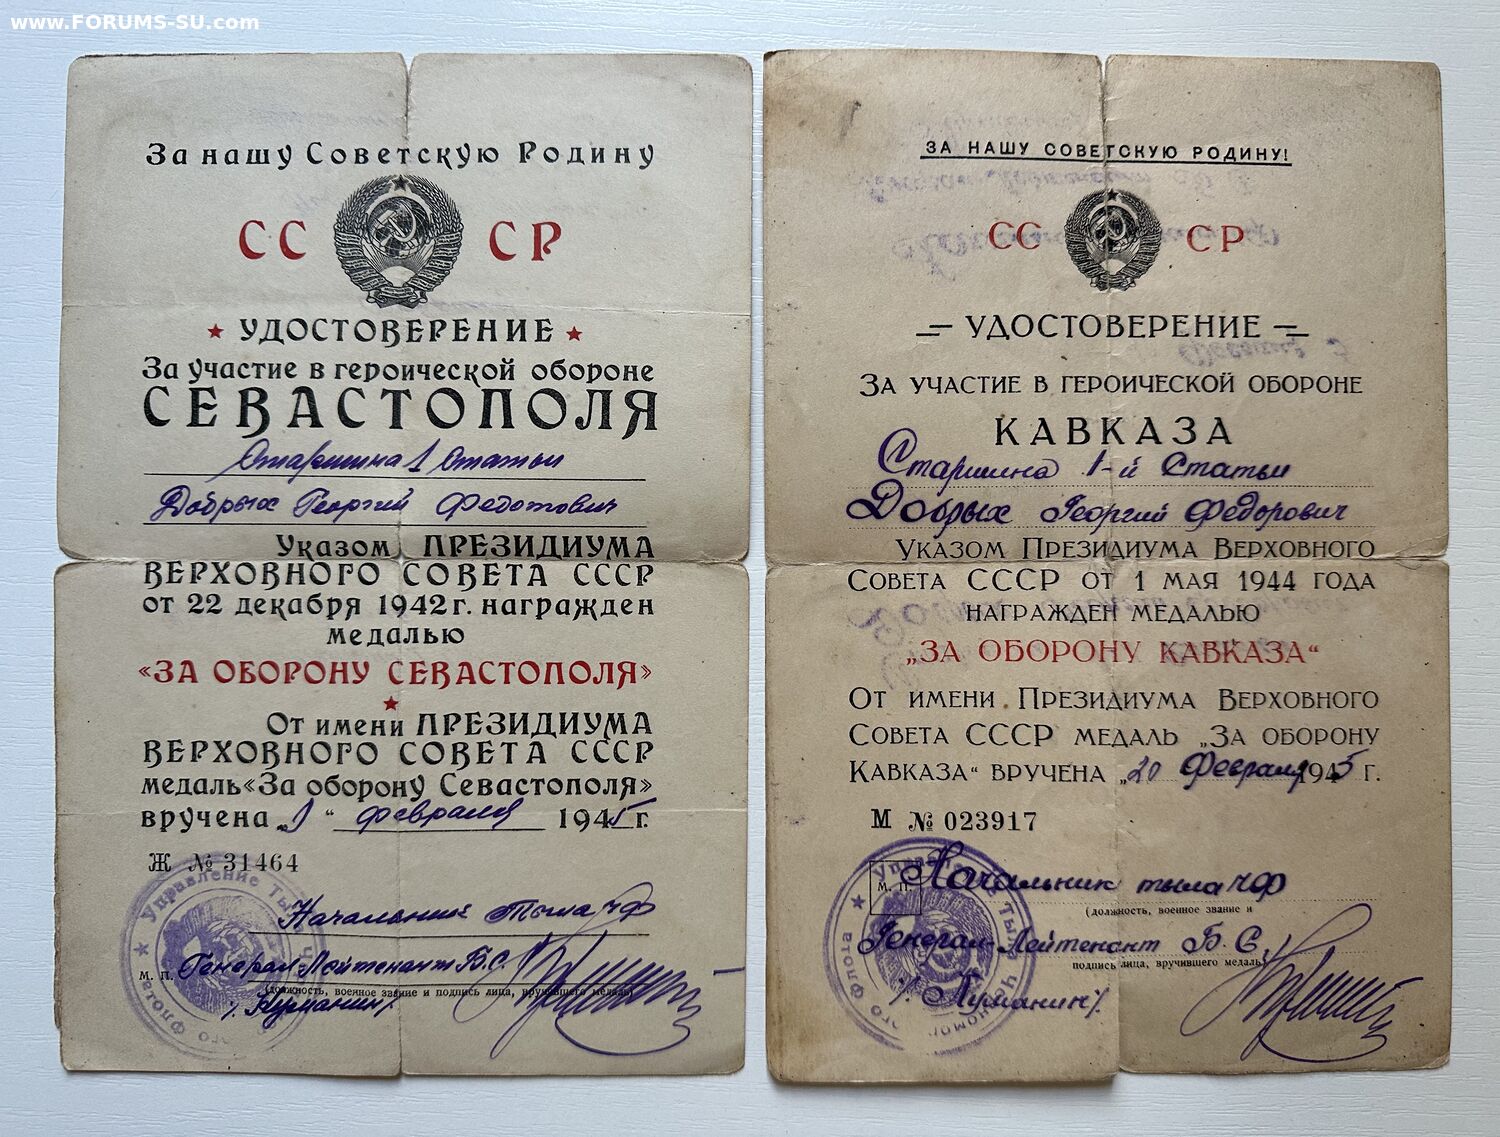 www.FORUMS-SU.com
За нашу Советскую Родину
СС СР
УДОСТОВЕРЕНИЕ
За участие в героической обороне
СЕВАСТОПОЛЯ
Старшина 1 Статьи
Добрых Георгий Федотович
Указом ПРЕЗИДИУМА
ВЕРХОВНОГО СОВЕТА СССР
от 22 декабря 1942 г. награжден
медалью
«ЗА ОБОРОНУ СЕВАСТОПОЛЯ»
От имени ПРЕЗИДИУМА
ВЕРХОВНОГО СОВЕТА СССР
медаль «За оборону Севастополя»
вручена „1“ февраля 1945 г.
Ж № 31464
Управление Ты
Начальник Тыла ЧФ
м. п. Генерал-Лейтенант Б.С.
(должность, военное звание и подпись лица, вручившего медаль)
ЗА НАШУ СОВЕТСКУЮ РОДИНУ!
СС СР
УДОСТОВЕРЕНИЕ
ЗА УЧАСТИЕ В ГЕРОИЧЕСКОЙ ОБОРОНЕ
КАВКАЗА
Старшина 1-й Статьи
Добрых Георгий Федорович
УКАЗОМ ПРЕЗИДИУМА ВЕРХОВНОГО
СОВЕТА СССР ОТ 1 МАЯ 1944 ГОДА
НАГРАЖДЕН МЕДАЛЬЮ
„ЗА ОБОРОНУ КАВКАЗА“
ОТ ИМЕНИ ПРЕЗИДИУМА ВЕРХОВНОГО
СОВЕТА СССР МЕДАЛЬ „ЗА ОБОРОНУ
КАВКАЗА“ ВРУЧЕНА „20 Февраля 1945 г.
М № 023917
М. П. Начальник тыла ЧФ
(должность, военное звание и
Генерал-Лейтенант Б. С.
подпись лица, вручившего медаль)